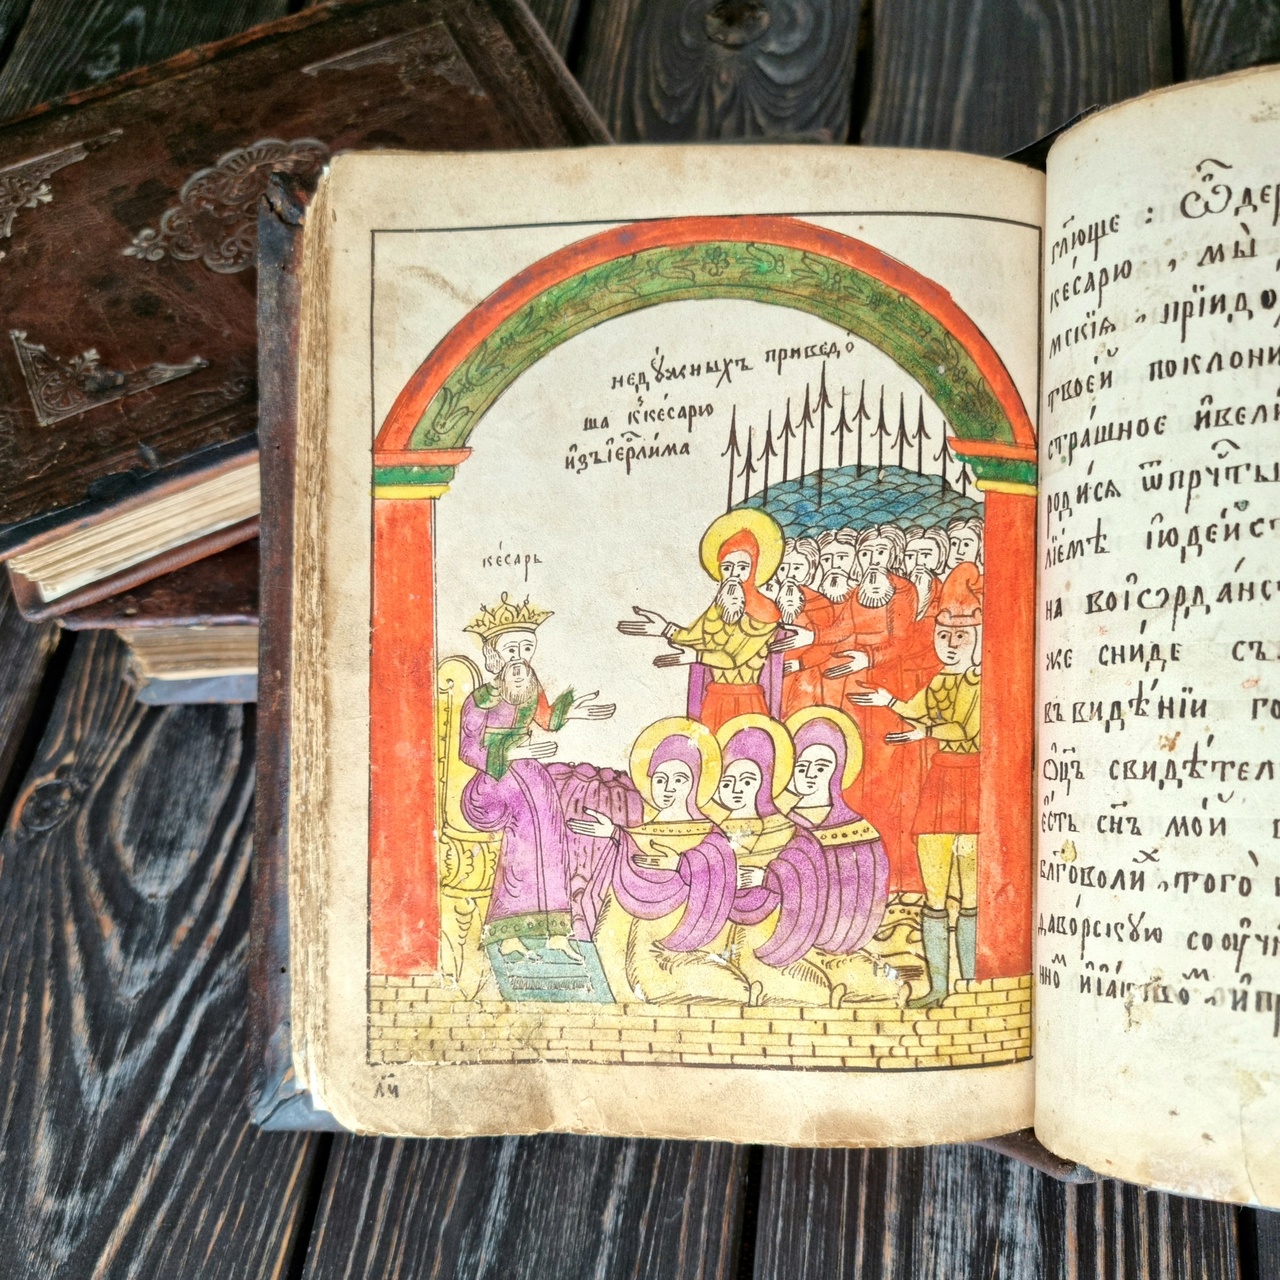 недꙋжныхъ приведо́
ша к̾ке́сарю
и҆зъі҆ерⷭ҇лима
ке́сарь
л҃и
гл҃юще : Ѿдер
ке́сарю , мы̀
мскїѧ , прїидо
твое́й поклони
стра́шное и҆вели
роди́сѧ ѿпрⷭ҇чты
лїе́мѣ і҆ю҆де́йст
на воі҆ѻрда́нс
же сни́де съ
въ видѣ́нїи го
ѻ҆ц҃ъ свидѣ́тел
є҆́сть сн҃ъ мо́й
бл҃говоли́хъ , того̀
даво́рскꙋю